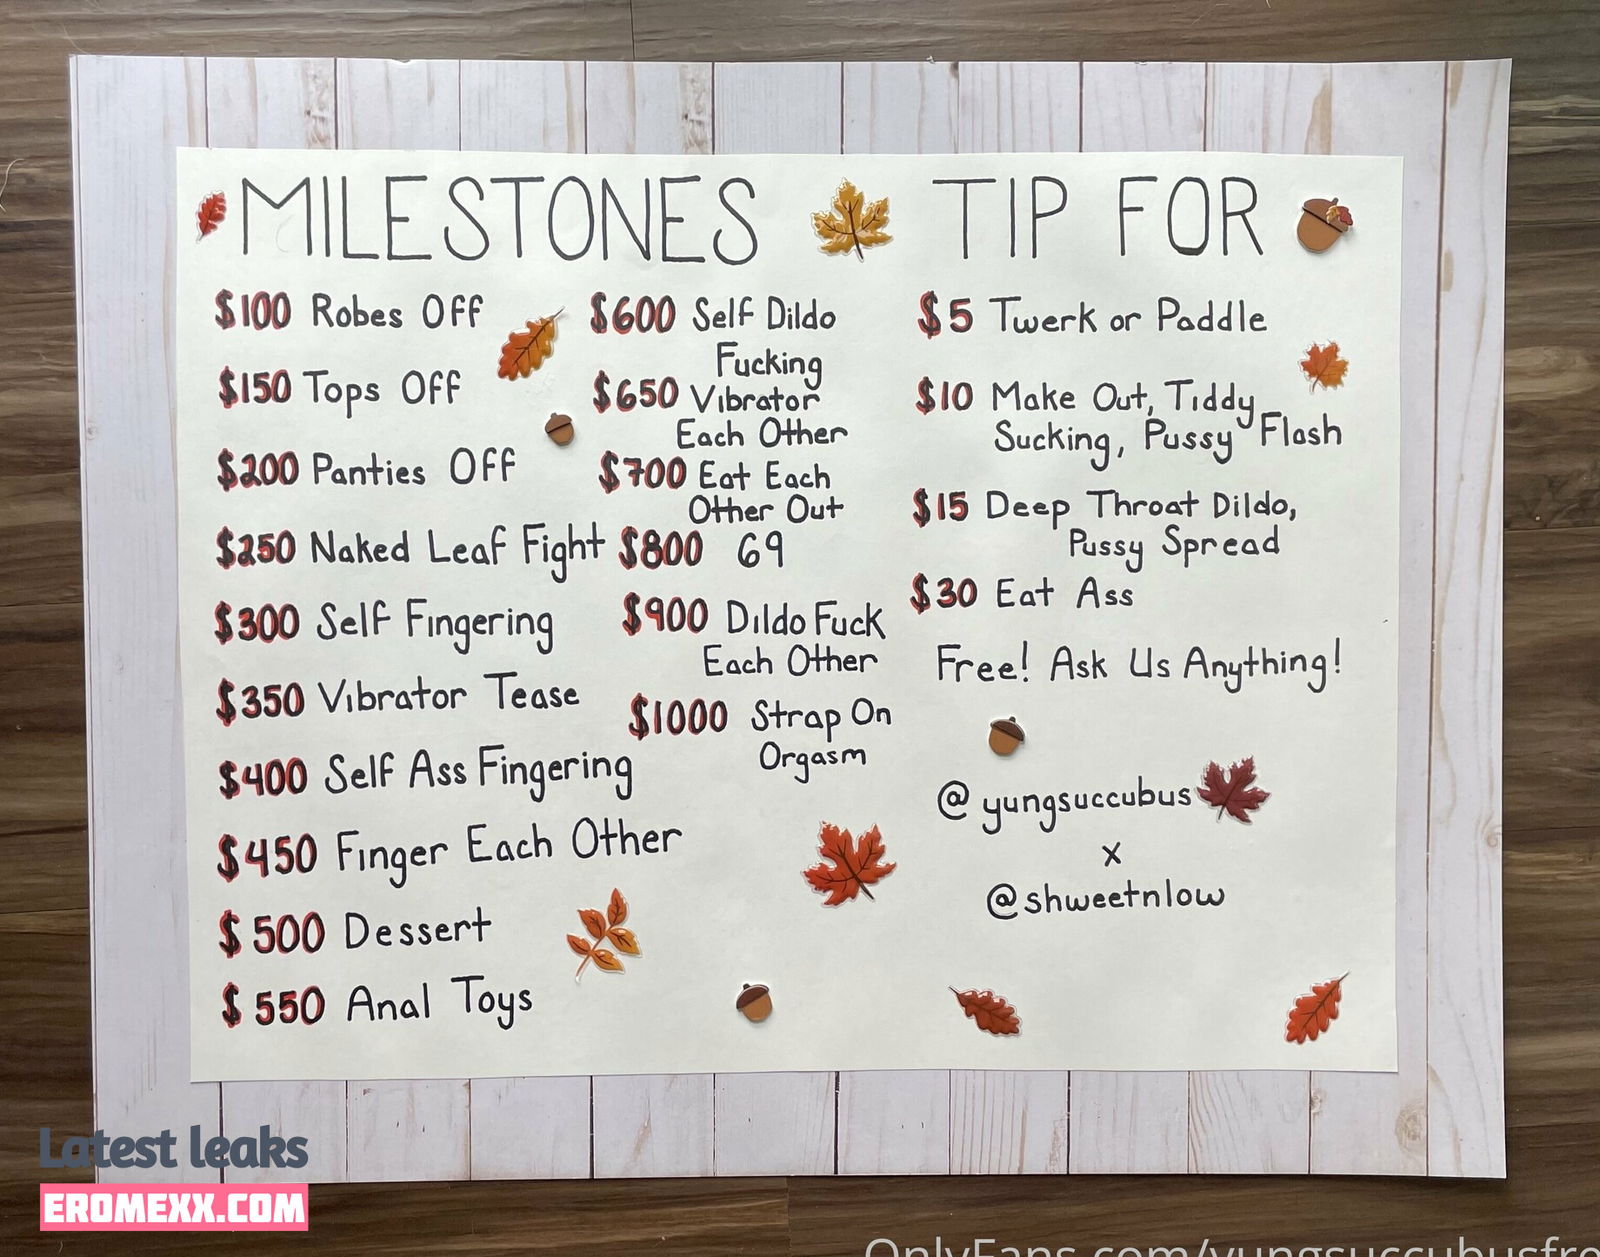 MILESTONES
$100 Robes Off
$150 Tops Off
$200 Panties Off
$250 Naked Leaf Fight
$300 Self Fingering
$350 Vibrator Tease
$400 Self Ass Fingering
$450 Finger Each Other
$500 Dessert
$550 Anal Toys
$600 Self Dildo
Fucking
$650 Vibrator
Each Other
$700 Eat Each
Other Out
$800 69
$900 Dildo Fuck
Each Other
$1000 Strap On
Orgasm
TIP FOR
$5 Twerk or Paddle
$10 Make Out, Tiddy
Sucking, Pussy Flash
$15 Deep Throat Dildo,
Pussy Spread
$30 Eat Ass
Free! Ask Us Anything!
@yungsuccubus
x
@shweetnlow
Latest leaks
EROMEXX.COM
OnlyFans.com/yungsuccubusfre